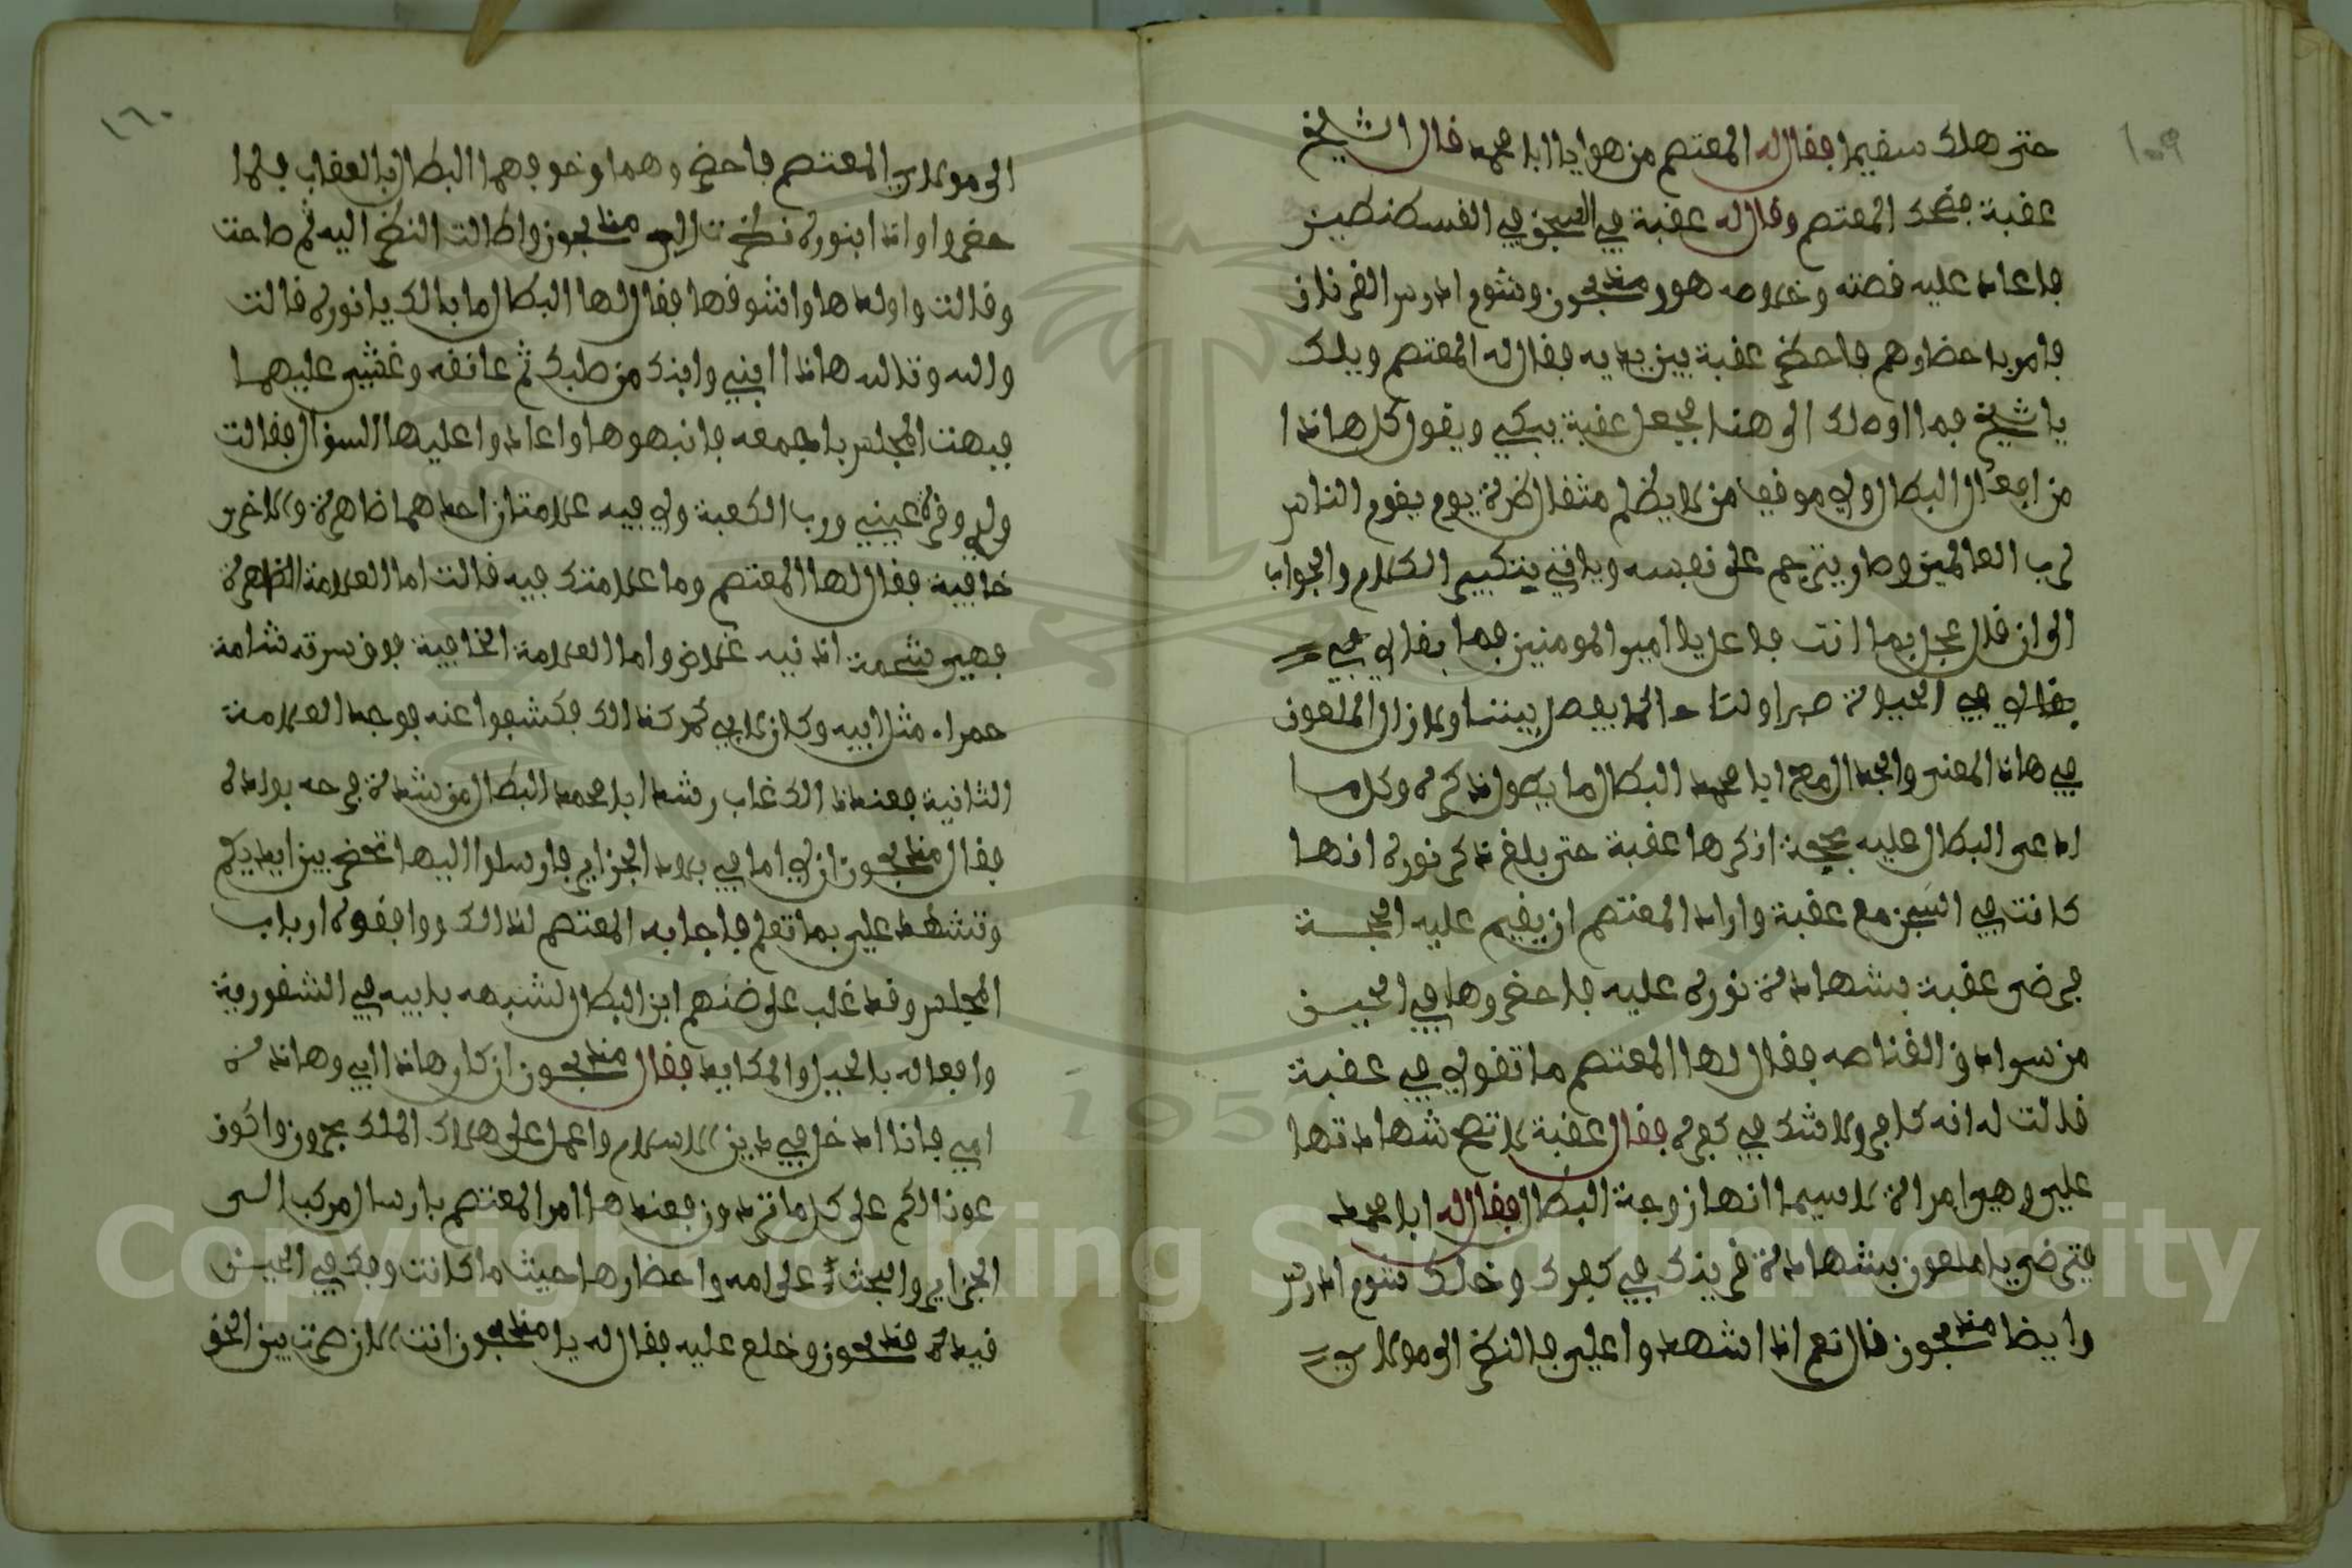 ١٥٩
حتى هلك سقيما فقال له المعتصم من هو يا ابا محمد قال الشيخ
عقبة فضحك المعتصم وقال له عقبة في السجن في القسطنطين
فاعاد عليه قصته وخلاصه هو و منذبحون وشوم ادرس الفرنان
فامر باحضارهم فاحضر عقبة بين يديه فقال له المعتصم ويلك
يا شيخ فما اوصلك الى هنا فجعل عقبة يبكي ويقول كل هاذا
من افعال البطال ولي موقف من لا يظلم مثقال ذرة يوم يقوم الناس
لرب العالمين وصار يترحم على نفسه وياتي الكلام والجواب
الى ان قال عجل بما انت فاعل يا امير المومنين فما بقا لي في
بقا لي في الحياة صبرا ولنا حاكما يفصل بيننا ولا زال الملعون
في هاذا المعنى والجدال مع ابا محمد البطال ما يطول ذكره وكلما
ادعى البطال عليه بحجة انكرها عقبة حتى بلغ ذكر نوره انها
كانت في السجن مع عقبة واراد المعتصم ان يقيم عليه الحجة
فرضي عقبة بشهادة نوره عليه فاحضروها في الحين
من سوادن القناصه فقال لها المعتصم ما تقولي في عقبة
قالت له انه كافر ولا شك في كفره فقال عقبة لا تصح شهادتها
علي وهي امراة لا سيما انها زوجة البطال فقال له ابا محمد
فترضى يا ملعون بشهادة قرينك في كفرك وخلك شوم ادرس
وايضا منذبحون قال نعم اذا شهدوا علي فالنظر الى مولاي
١٦٠
الى مولاي المعتصم فاحضروهما وخوفهما البطال بالعقاب فلما
حضروا واذا بنوره نظرت الى منذبحون واطالت النظر اليه ثم صاحت
وقالت واولداه واشوقاه فقال لها البطال ما بالك يا نوره قالت
والله وتالله هاذا ابني وابنك من صلبك ثم عانقه وغشي عليهما
فبهت المجلس باجمعه فانبهوها واعادوا عليها السؤال فقالت
ولدي وقرة عيني ورب الكعبة ولي فيه علامتان احداهما ظاهرة والاخرى
خافية فقال لها المعتصم وما علامتك فيه قالت اما العلامة الظاهرة
فهي شحمة اذنيه غلاض واما العلامة الخافية فوق سرته شامة
حمراء مثل ابيه وكان لابي كذالك فكشفوا عنه فوجد العلامة
الثانية فعند ذالك غاب رشد ابا محمد البطال من شدة فرحه بولده
فقال منذبحون ان لي اما في بلاد الجزاير فارسلوا اليها تحضر بين ايديكم
وتشهد علي بما تعلم فاجابه المعتصم لذالك ووافقوه ارباب
المجلس وقد غلب على ضنهم ابن البطال لشبهه بابيه في الشقورية
وافعاله بالحيل والمكايد فقال منذبحون ان كان هاذا ابي وهاذه
امي فانا ادخل في دين الاسلام واعمل على هلاك الملك بحرون واكون
عونا لكم على كل ما تريدون فعندها امر المعتصم بارسال مركب الى
الجزاير والبحث على امه واحضارها حيث ما كانت وفك في الحين
قيده منذبحون وخلع عليه فقال له يا منذبحون انت الان صرت بين الحق